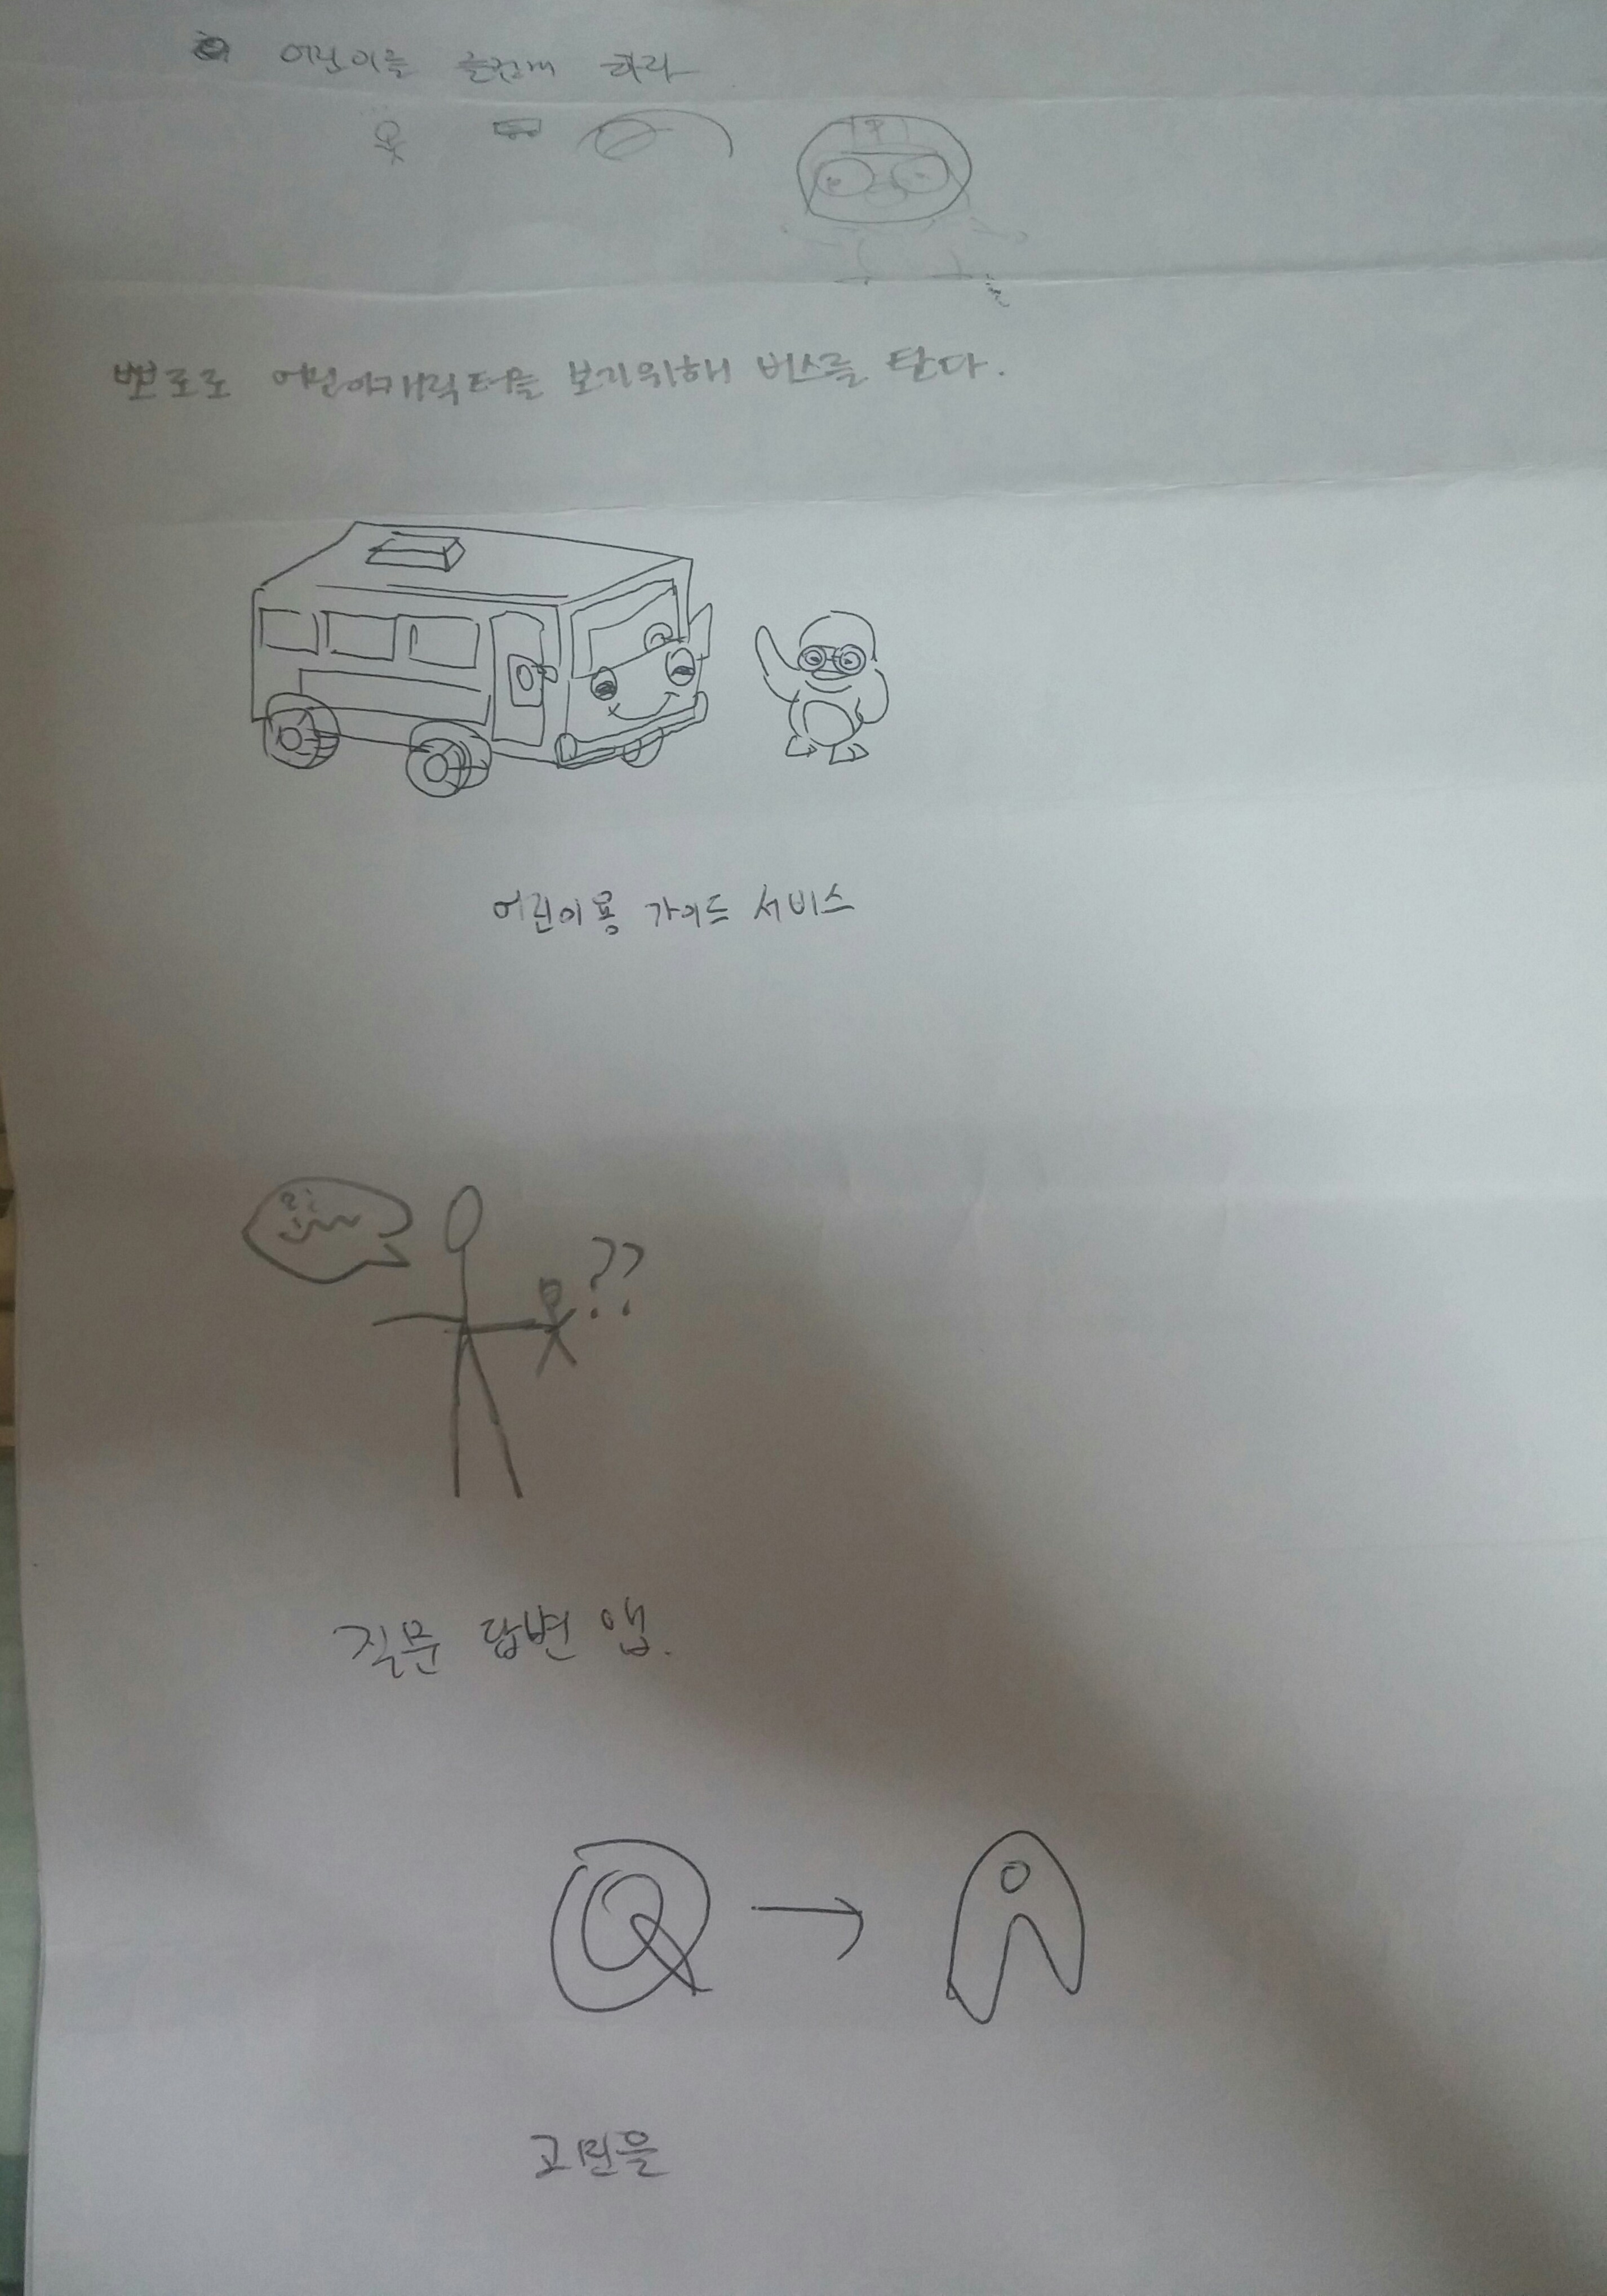 어린이를 즐겁게 하라
뽀로로 어린이캐릭터을 보기위해 버스를 탄다.
어린이용 가이드 서비스
??
질문 답변 앱.
Q → A
고민을